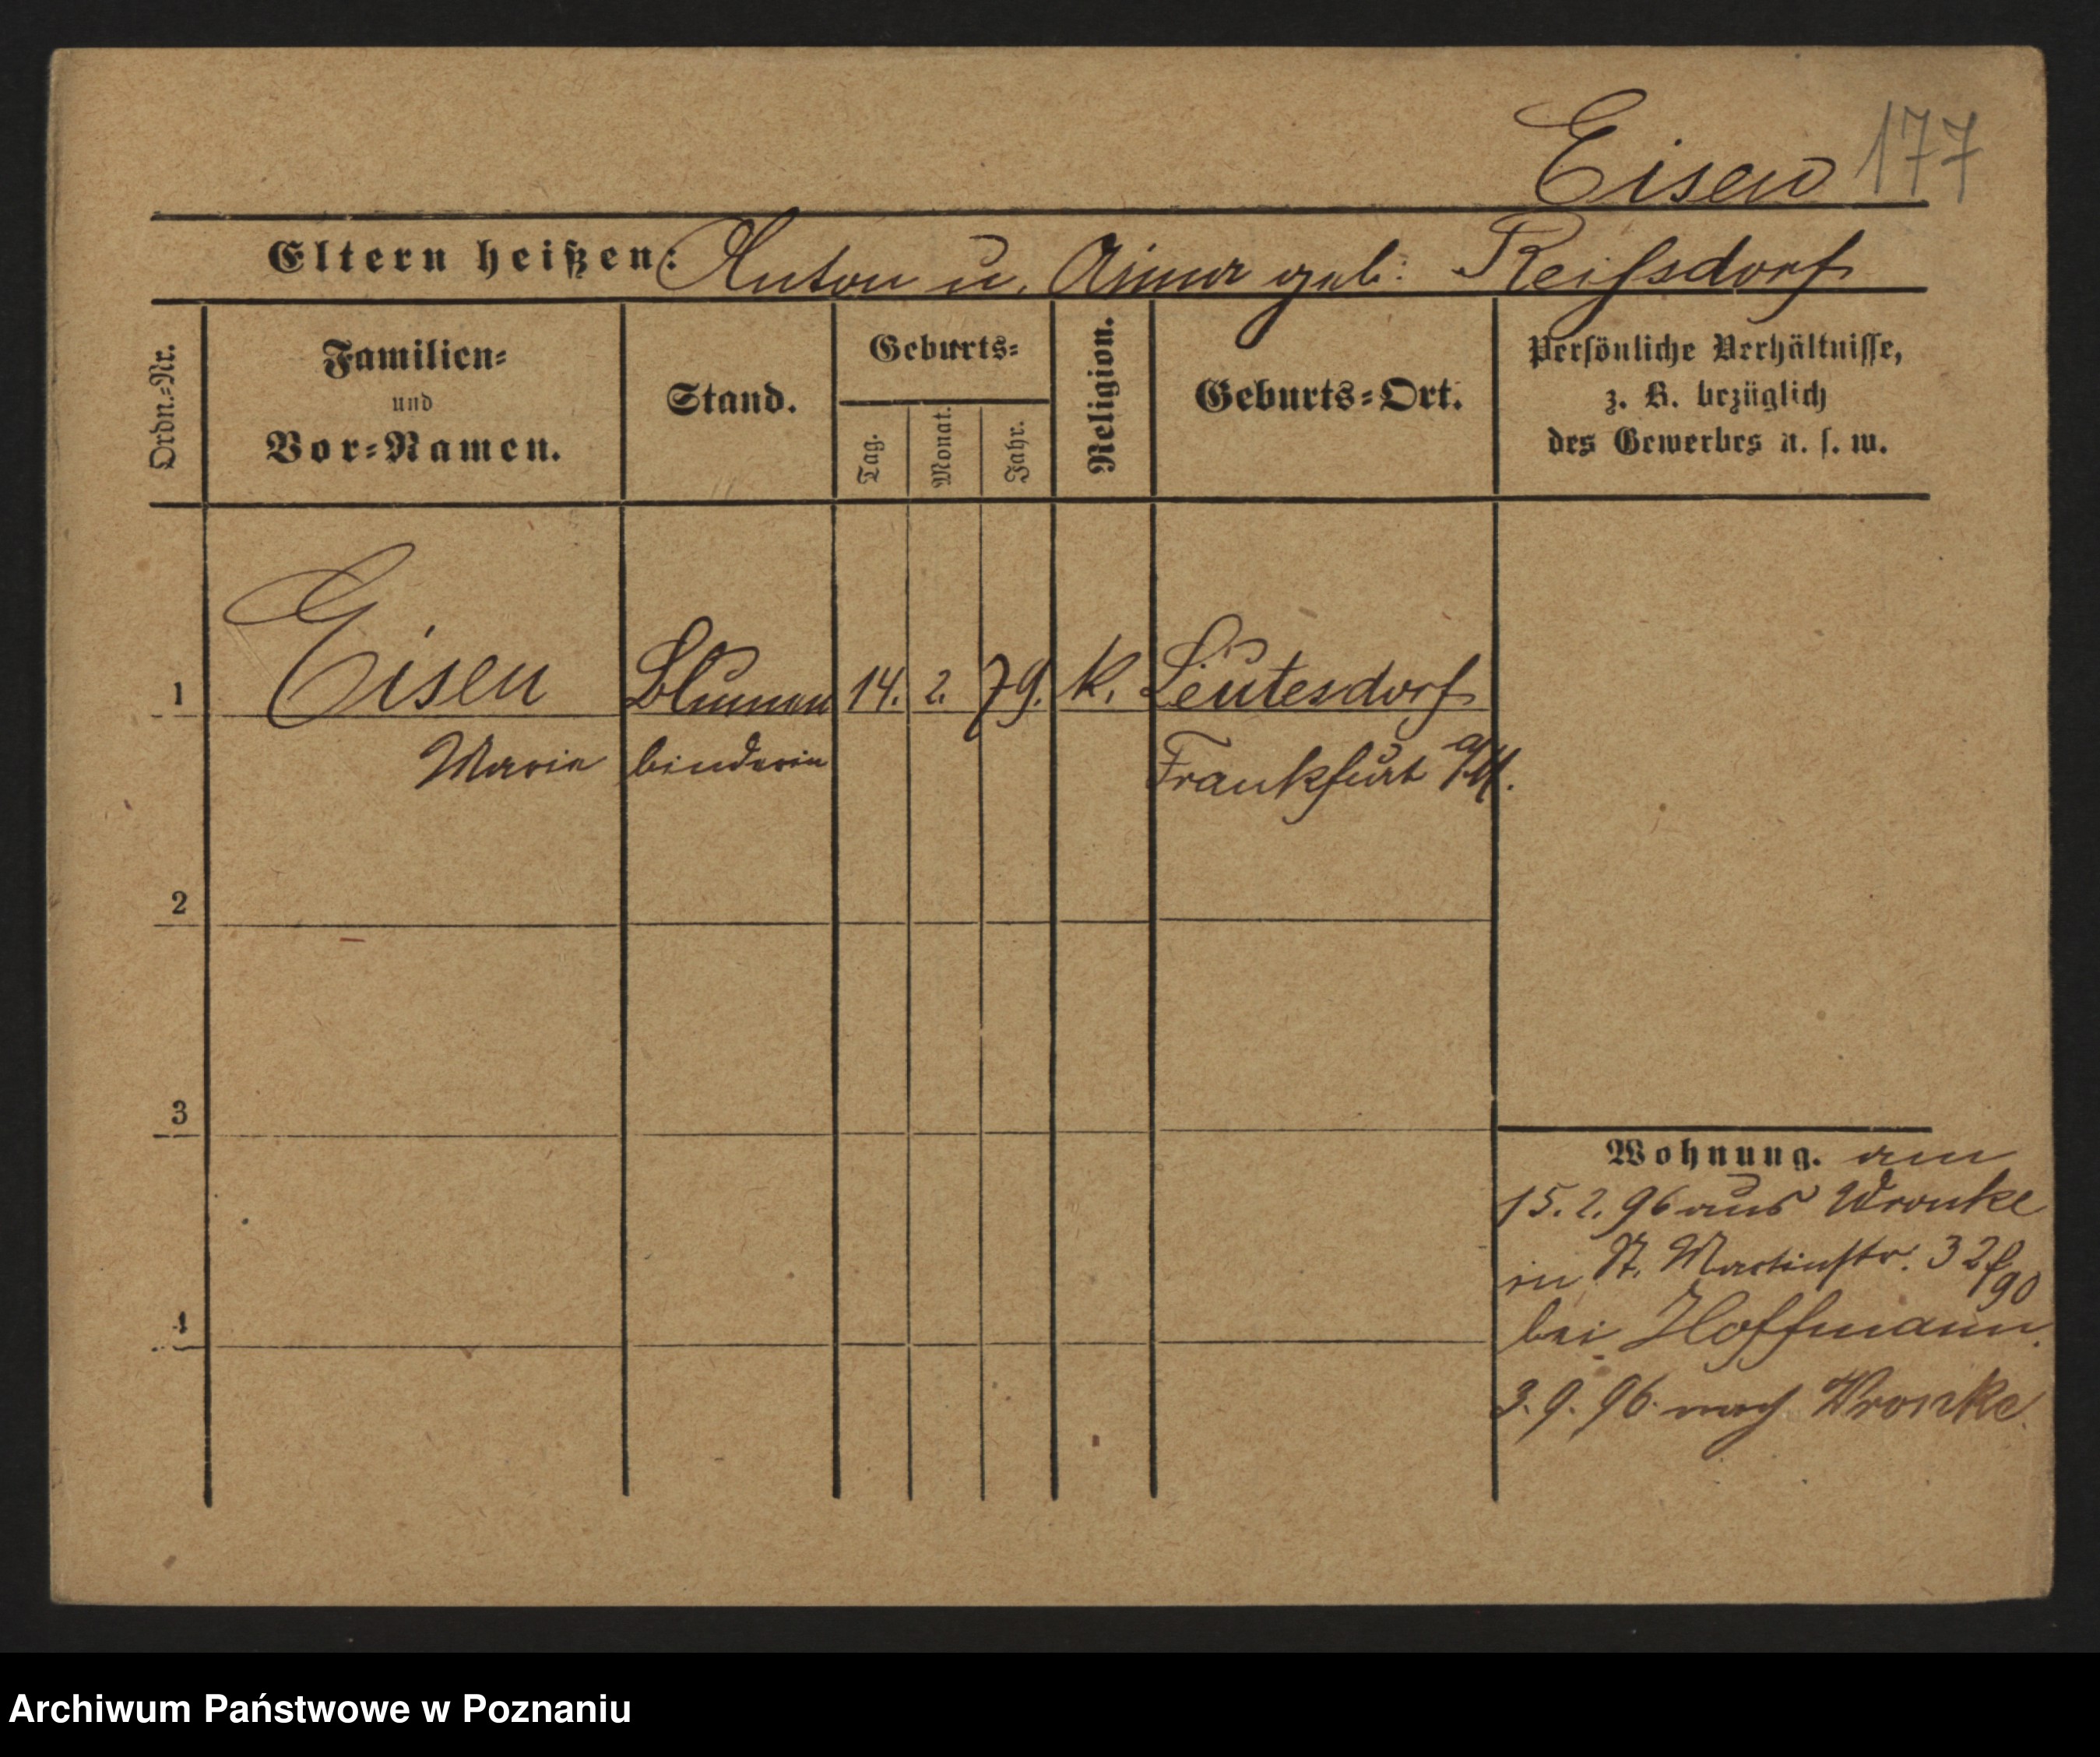 Eisen 177
Eltern heißen: Anton u. Anna geb. Reißsdorf
Ordn.=Nr.
Familien=
und
Vor=Namen.
Stand.
Geburts=
Tag.
Monat.
Jahr.
Religion.
Geburts=Ort.
Persönliche Verhältnisse,
z. B. bezüglich
des Gewerbes u. s. w.
1 Eisen Blumen 14. 2. 79. k. Leutesdorf
Marie binderin Frankfurt a/M.
2
3
4
Wohnung. am
15. 2. 96 aus Wronke
in St. Martinstr. 32/90
bei Hoffmann.
3. 9. 96. nach Wronke.
Archiwum Państwowe w Poznaniu